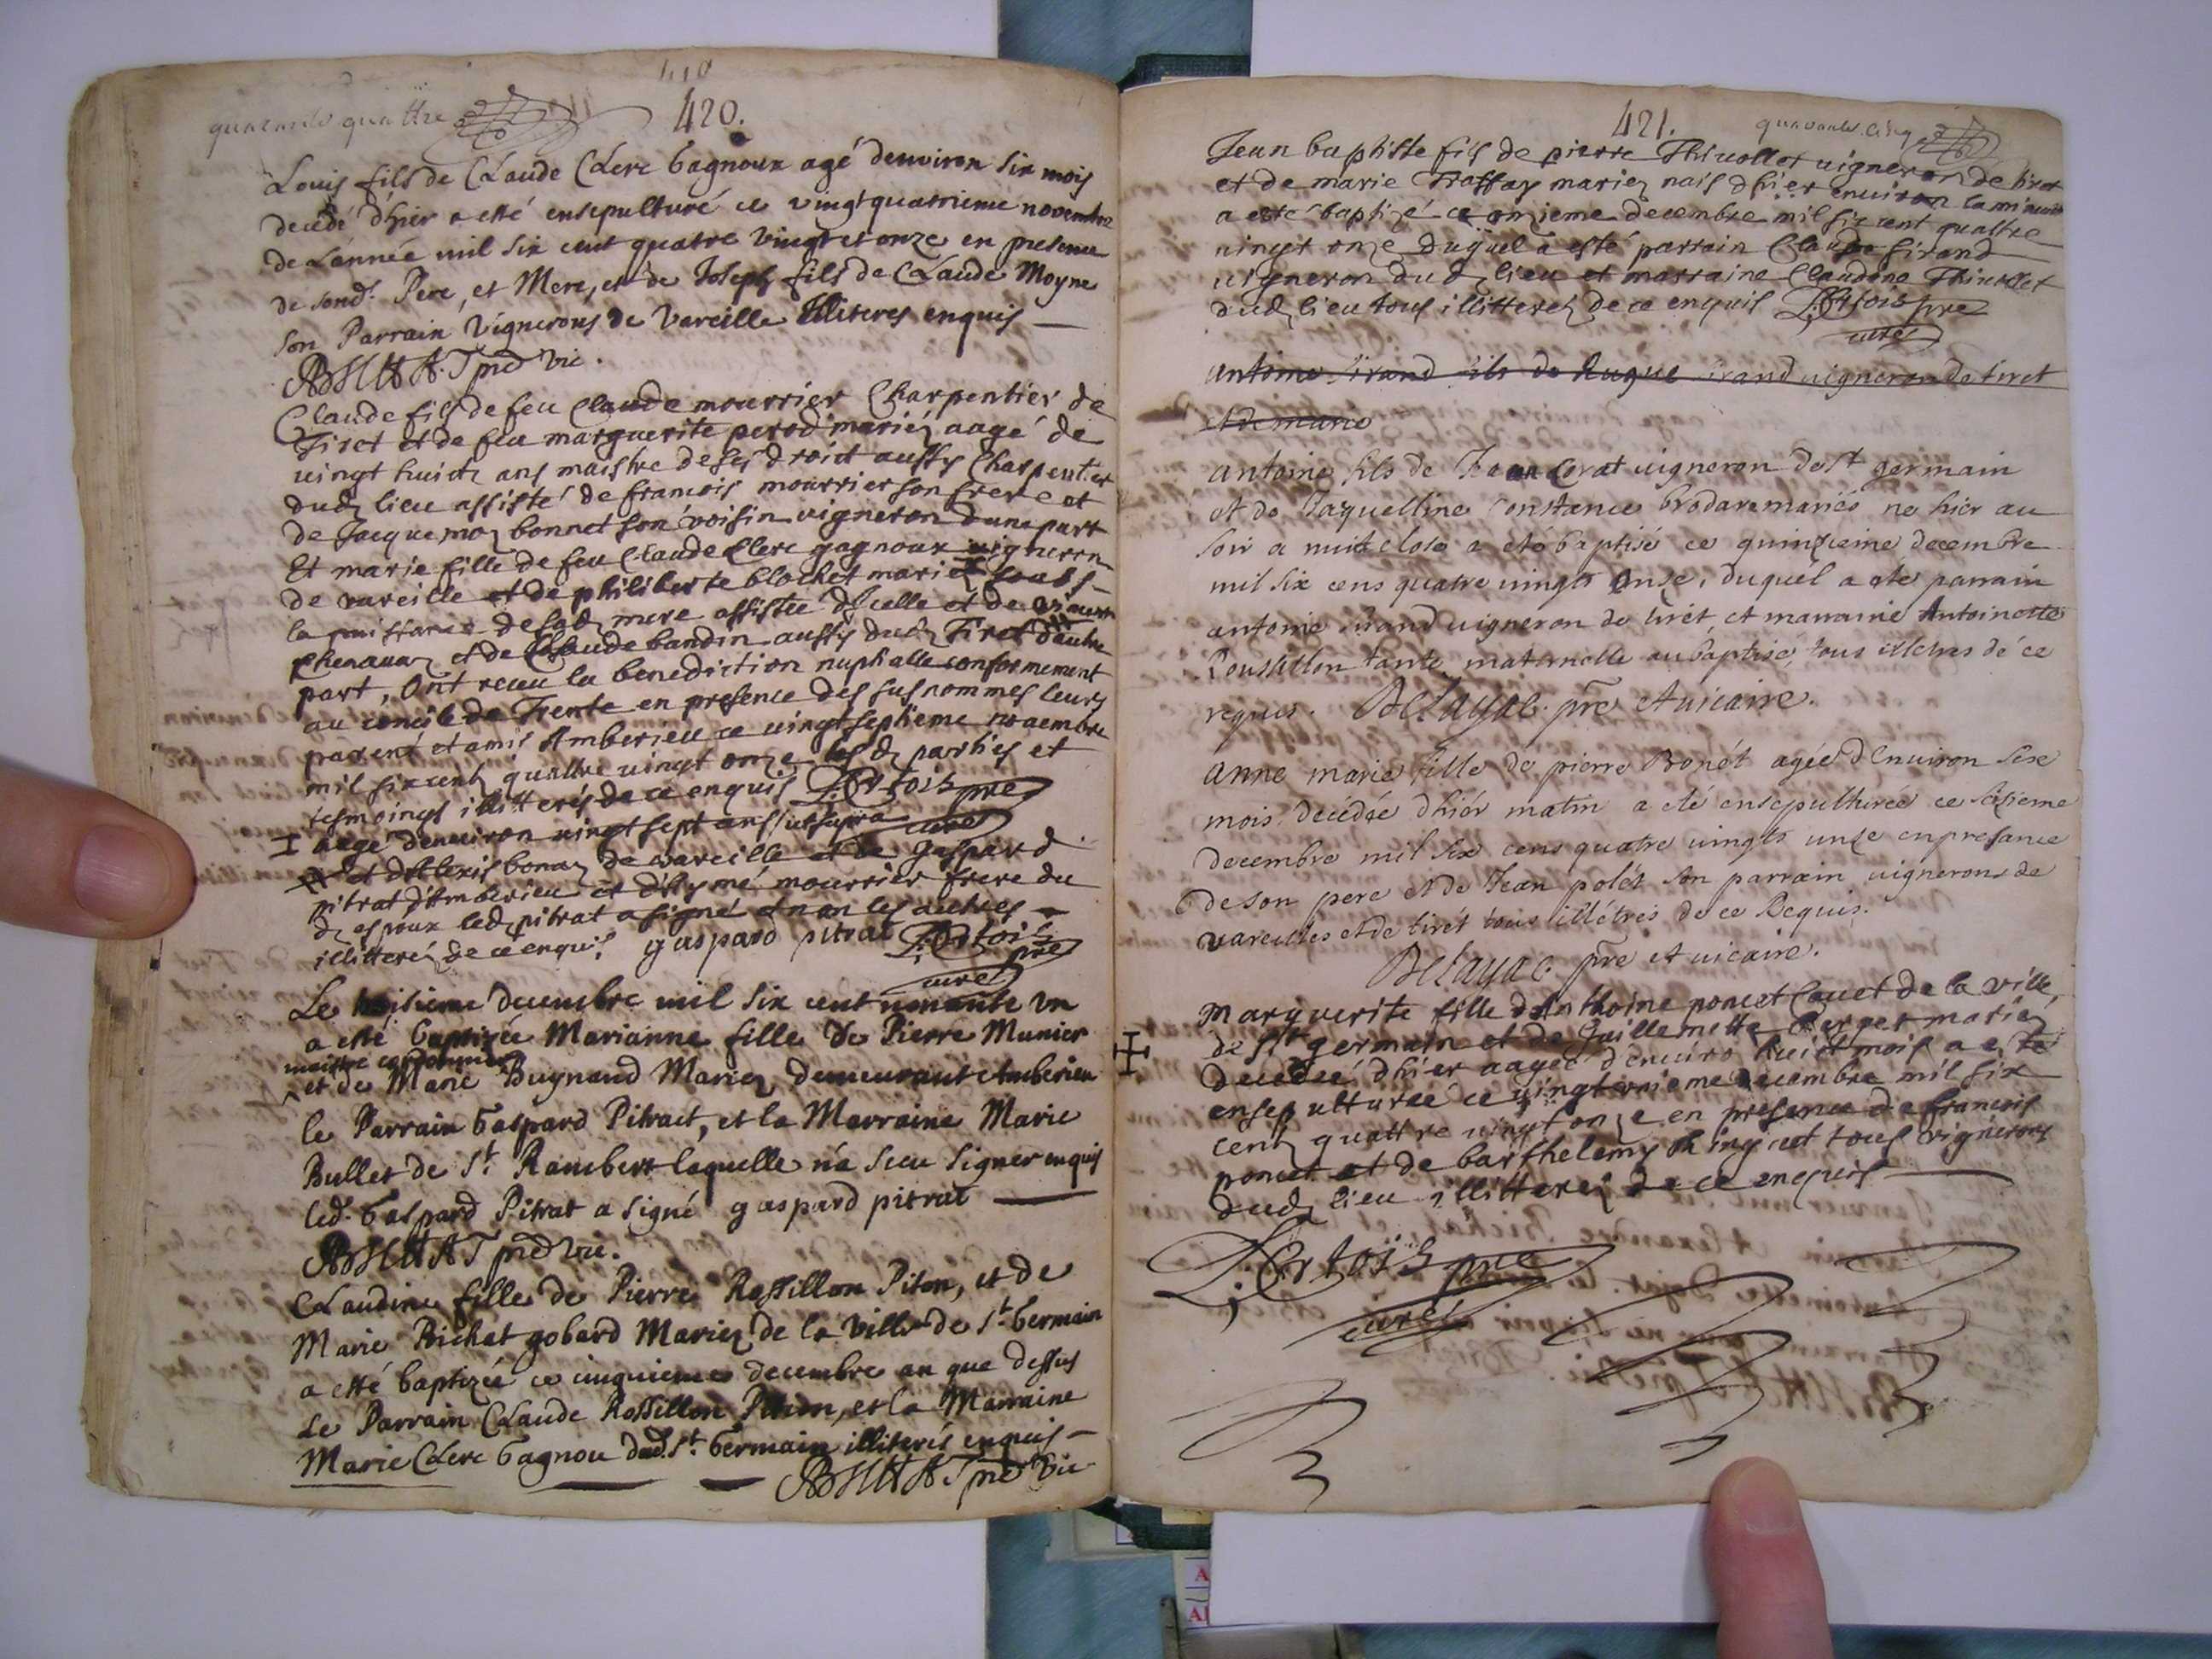 quarante quattre
420.
Louis fils de Claude Clerc Gagnoux agé denviron six mois
decedé d'hier a esté ensepulturé ce vingt quatrieme novembre
de L'année mil six cent quatre vingt et onze en presence
de sond. Pere, et Mere, et de Joseph fils de Claude Moyne
son Parrain Vignerons de Vareille Illiteres enquis
pre vic.
Claude fils de feu Claude mourrier Charpentier de
Tiret et de feu marguerite perod mariéz aagé de
vingt huict ans maistre de ses droict aussy Charpentier
dud lieu assisté de francois mourrier son frere et
de Jacquemoz bonnet son voisin vigneron dune part
Et marie fille de feu Claude Clerc gagnoux vigneron
de vareille et de philiberte blochet mariez soubs
la puissance de sad mere assistée dicelle et de
et de Claude baudin aussy dud Tiret d'autre
part, Ont receu la benediction nuptialle conformement
au concile de Trente en presence des susnommes leurs
parent et amis Amberieu ce vingt septieme novembre
mil six cent quattre vingt onze les d parties et
tesmoings illitterés de ce enquis pre
aagé denviron vingt sept ans ut supra curé
et d'Alexis bonaz de vareille et de gaspard
pitrat d'Amberieu et d'Aymé mourrier frere du
d espoux led pitrat a signé et non les autres
illitteréz de ce enquis gaspard pitrat pre
curé
Le decembre mil six cent nonante un
a esté Baptizée Marianne fille de Pierre Munier
maistre cordonnier
et de Marie Bugnand Mariez demeurant Amberieu
le Parrain Gaspard Pitract, et la Marraine Marie
Bullet de St. Rambert laquelle n'a sceu signer enquis
led. Gaspard Pitrat a signé gaspard pitrat
pre vic.
Claudine fille de Pierre Rossillon Piton, et de
Marie Bichat gobard Mariez de la Ville de St. Germain
a esté baptizée ce cinquieme decembre an que dessus
Le Parrain Claude Rossillon Pition, et la Marraine
Marie Clerc Gagnou dud. St. Germain illiterés enquis
pre vic
421.
quarante cinq
Jean baptiste fils de pierre Thivollet vigneron de tiret
et de marie Trassay mariez nais d'hier environ la minuit
a esté baptizé ce onzieme decembre mil six cent quattre
vingt onze Duquel a esté parrain Claude sirand
vigneron dud lieu et marraine Claudine Thivollet
dud lieu tous illitterez de ce enquis pre
curé
antoine sirand fils de hugue sirand vigneron de tiret
et de marie
antoine fils de Jean Cerat vigneron de st germain
et de Jaquelline Constance brodare mariés né hier au
soir a nuit close a eté baptisé ce quinzieme decembre
mil six cens quatre vingts onze, duquel a ete parrain
antoine sirand vigneron de tirét, et marraine Antoinette
Roussillon tante maternelle au baptisé, tous illetrés dé ce
requis. Delayac pre et vicaire.
anne marie fille dé pierre Bonét agée d'Environ sese
mois, decedée d'hiér matin a eté ensepulturée ce sesieme
decembre mil six cens quatre vingts unze en presance
de son pere et de Jean polét son parrain vignerons de
vareilles et de tirét tous illétrés de ce Requis.
Delayac pre et vicaire.
Marguerite fille d'Anthoine poncet Cavet de la ville,
de st germain et de Guillemette Berger mariez
decedée d'hier aagée d'enviro huict mois a esté
ensepulturée ce decembre mil six
cent quattre vingt onze en presence de francois
poncet et de barthelemy tous vignerons
dud lieu illitterez de ce enquis
pre
curé